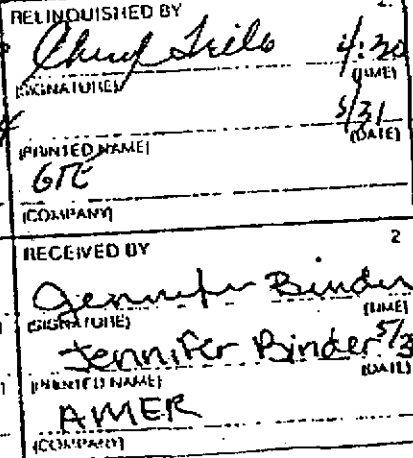 RELINQUISHED BY 2.
Cheryl 4:20
(SIGNATURE) (TIME)
5/31
(PRINTED NAME) (DATE)
GTE
(COMPANY)
RECEIVED BY 2
Jennifer Binder
(SIGNATURE) (TIME)
Jennifer Binder 5/3
(PRINTED NAME) (DATE)
AMER
(COMPANY)